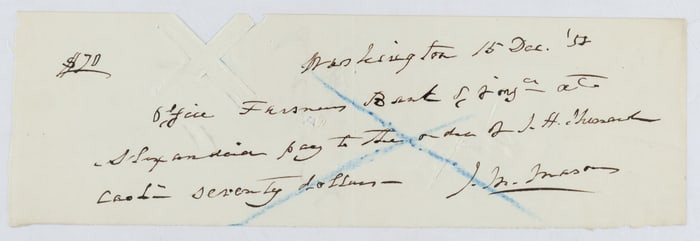 $70
Washington 15 Dec. '52
Office Farmers Bank of Virga at
Alexandria pay to the order of J. H.
Cashr seventy dollars—
J. M. Mason